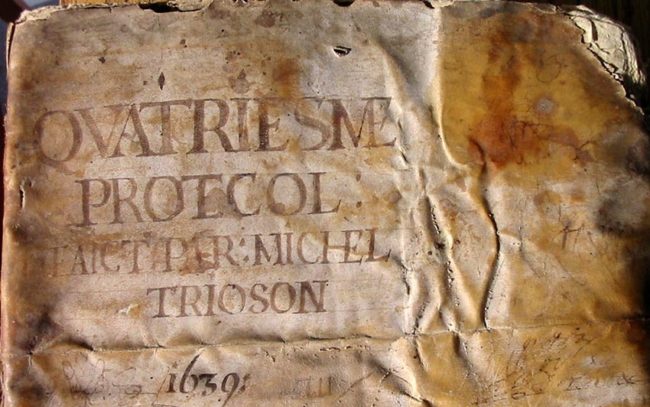 QVATRIESME
PROTECOL:
FAICT: PAR: MICHEL
TRIOSON
1639: